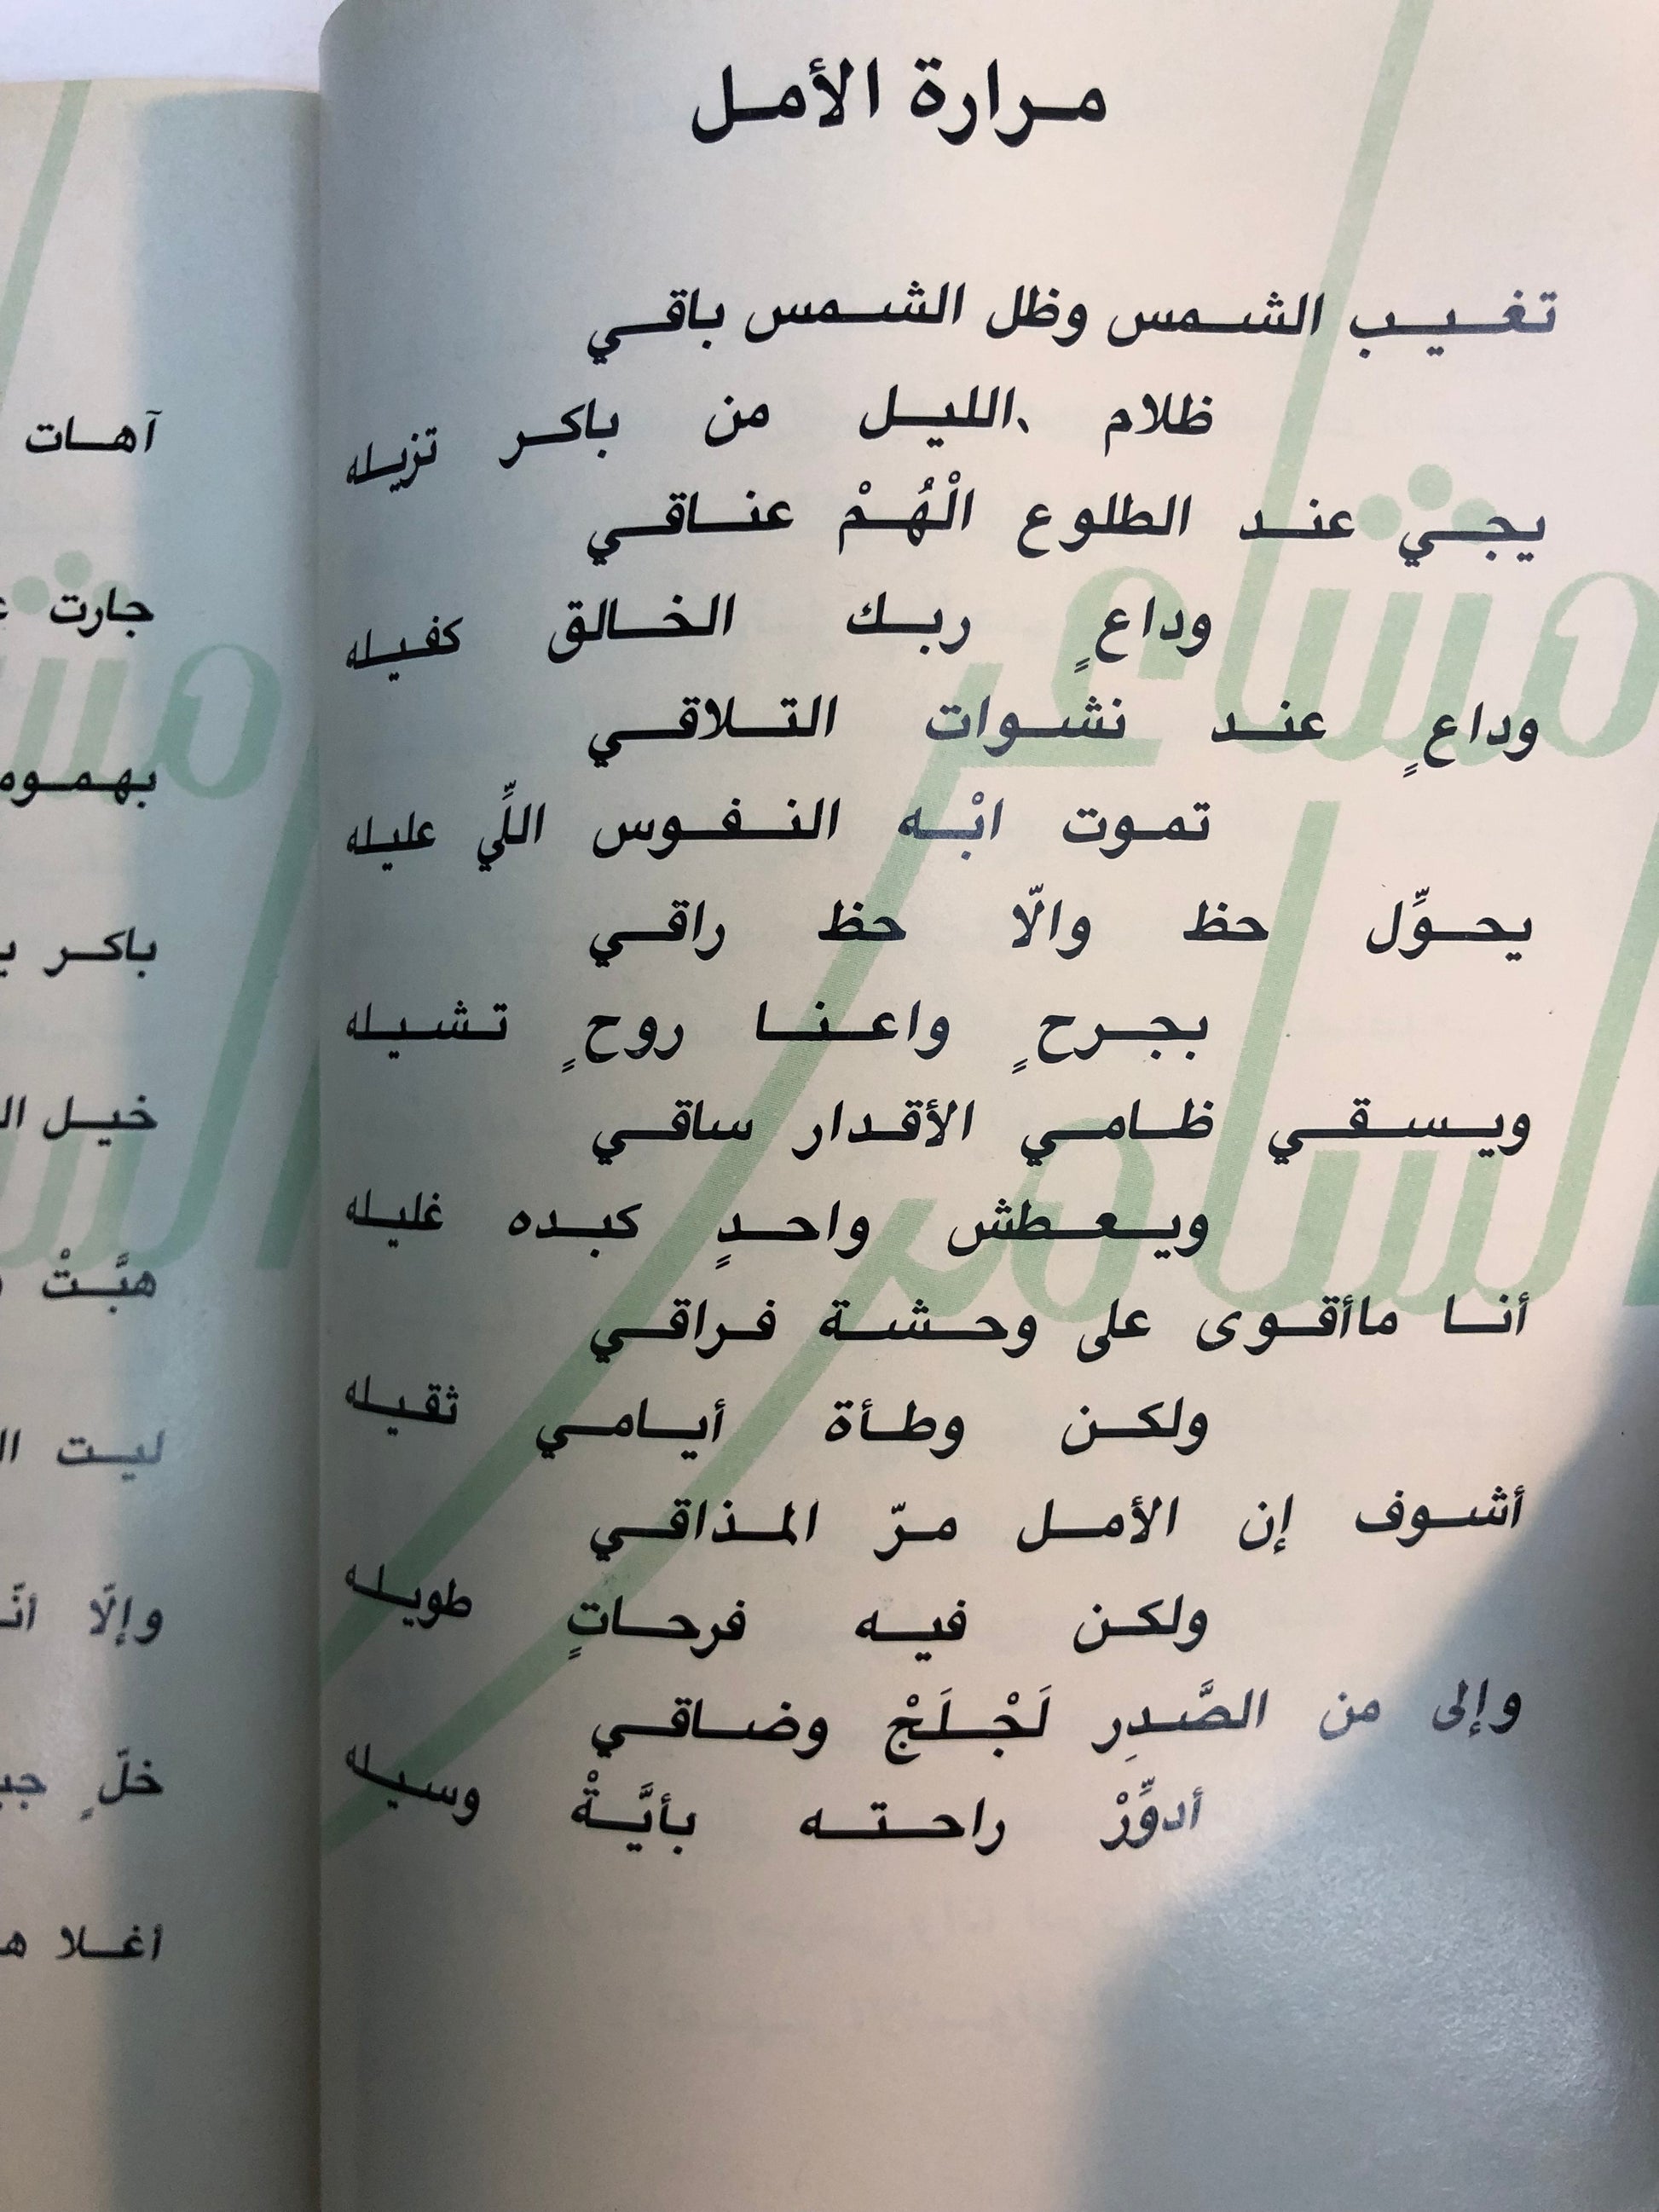 مرارة الأمل
تغيب الشمس وظل الشمس باقي
ظلام الليل من باكر تزيله
يجي عند الطلوع الْهُمْ عناقي
وداعٍ ربك الخالق كفيله
وداعٍ عند نشوات التلاقي
تموت ابْه النفوس اللِّي عليله
يحوِّل حظ والّا حظ راقي
بجرحٍ واعنا روحٍ تشيله
ويسقي ظامي الأقدار ساقي
ويعطش واحدٍ كبده غليله
أنا ماأقوى على وحشة فراقي
ولكن وطأة أيامي ثقيله
أشوف إن الأمل مرّ المذاقي
ولكن فيه فرحاتٍ طويله
وإلى من الصَّدِر لَجْلَجْ وضاقي
أدوِّرْ راحته بأيَّةْ وسيله
مشاعر
السامر
آهات
جارت
باكر
خيل
هبَّتْ
ليت
وإلّا
خلٍّ
أغلا